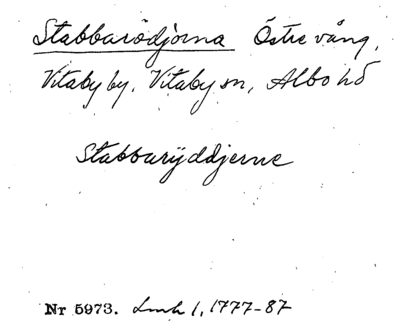 Stabbarödjorna Östre vång,
Vitaby by, Vitaby sn, Albo hd
Stabbarÿddjerne
Nr 5973. Lmh 1, 1777-87